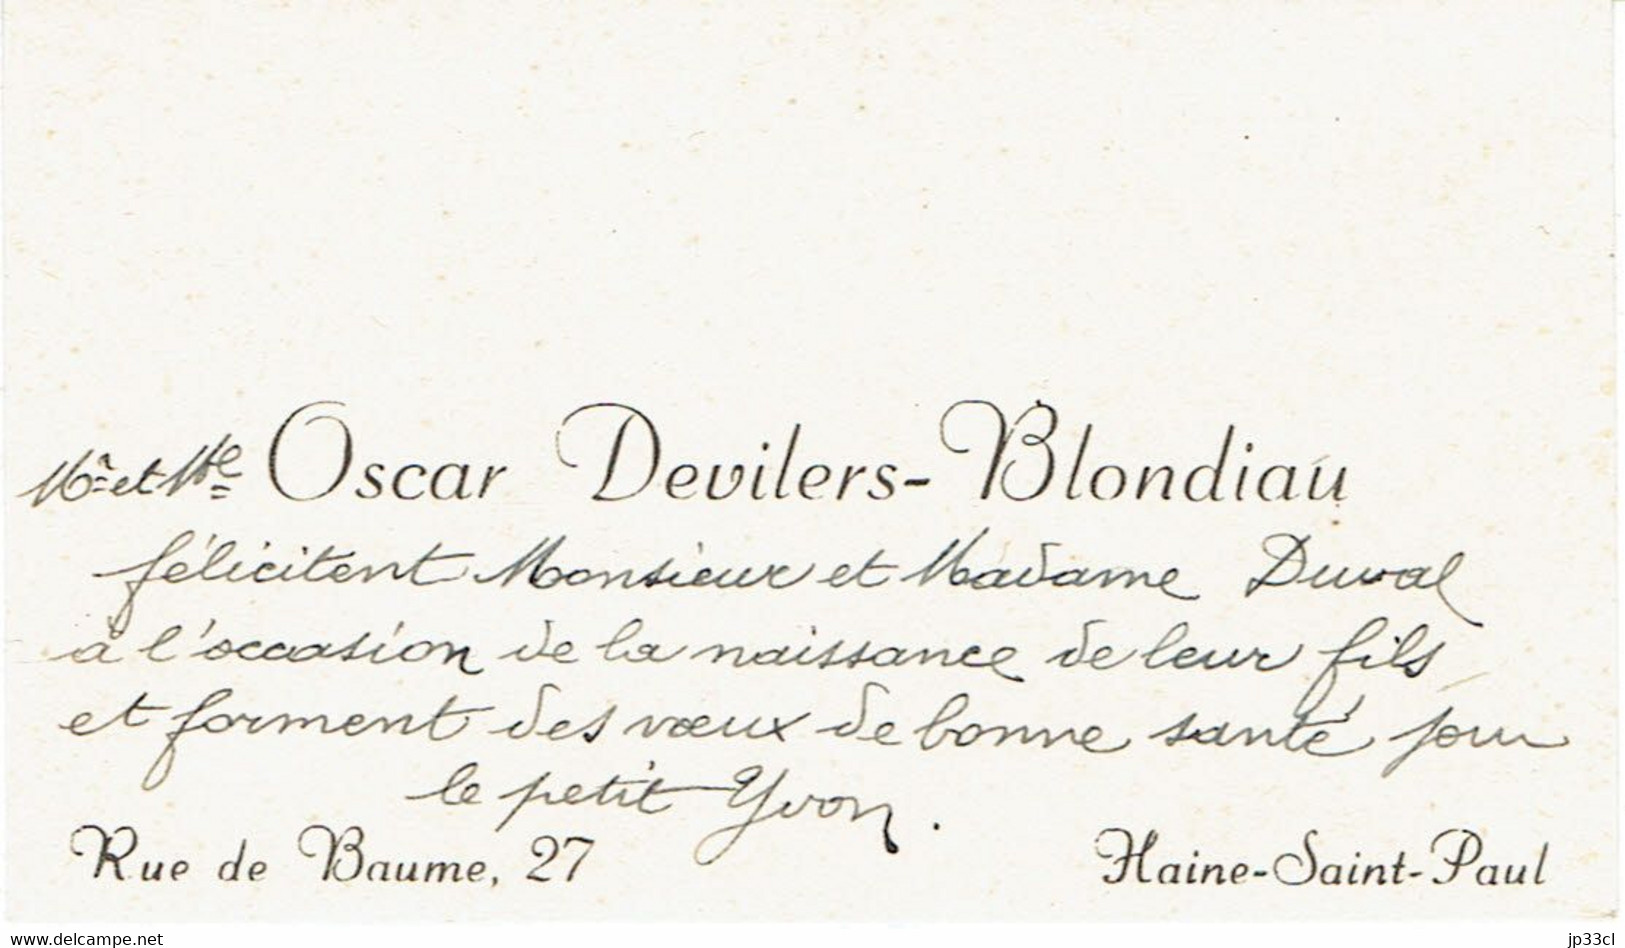 Mr et Me Oscar Devilers-Blondiau
félicitent Monsieur et Madame Duval
à l'occasion de la naissance de leur fils
et forment des vœux de bonne santé pour
le petit Yvon.
Rue de Baume, 27 Haine-Saint-Paul
www.delcampe.net jp33cl